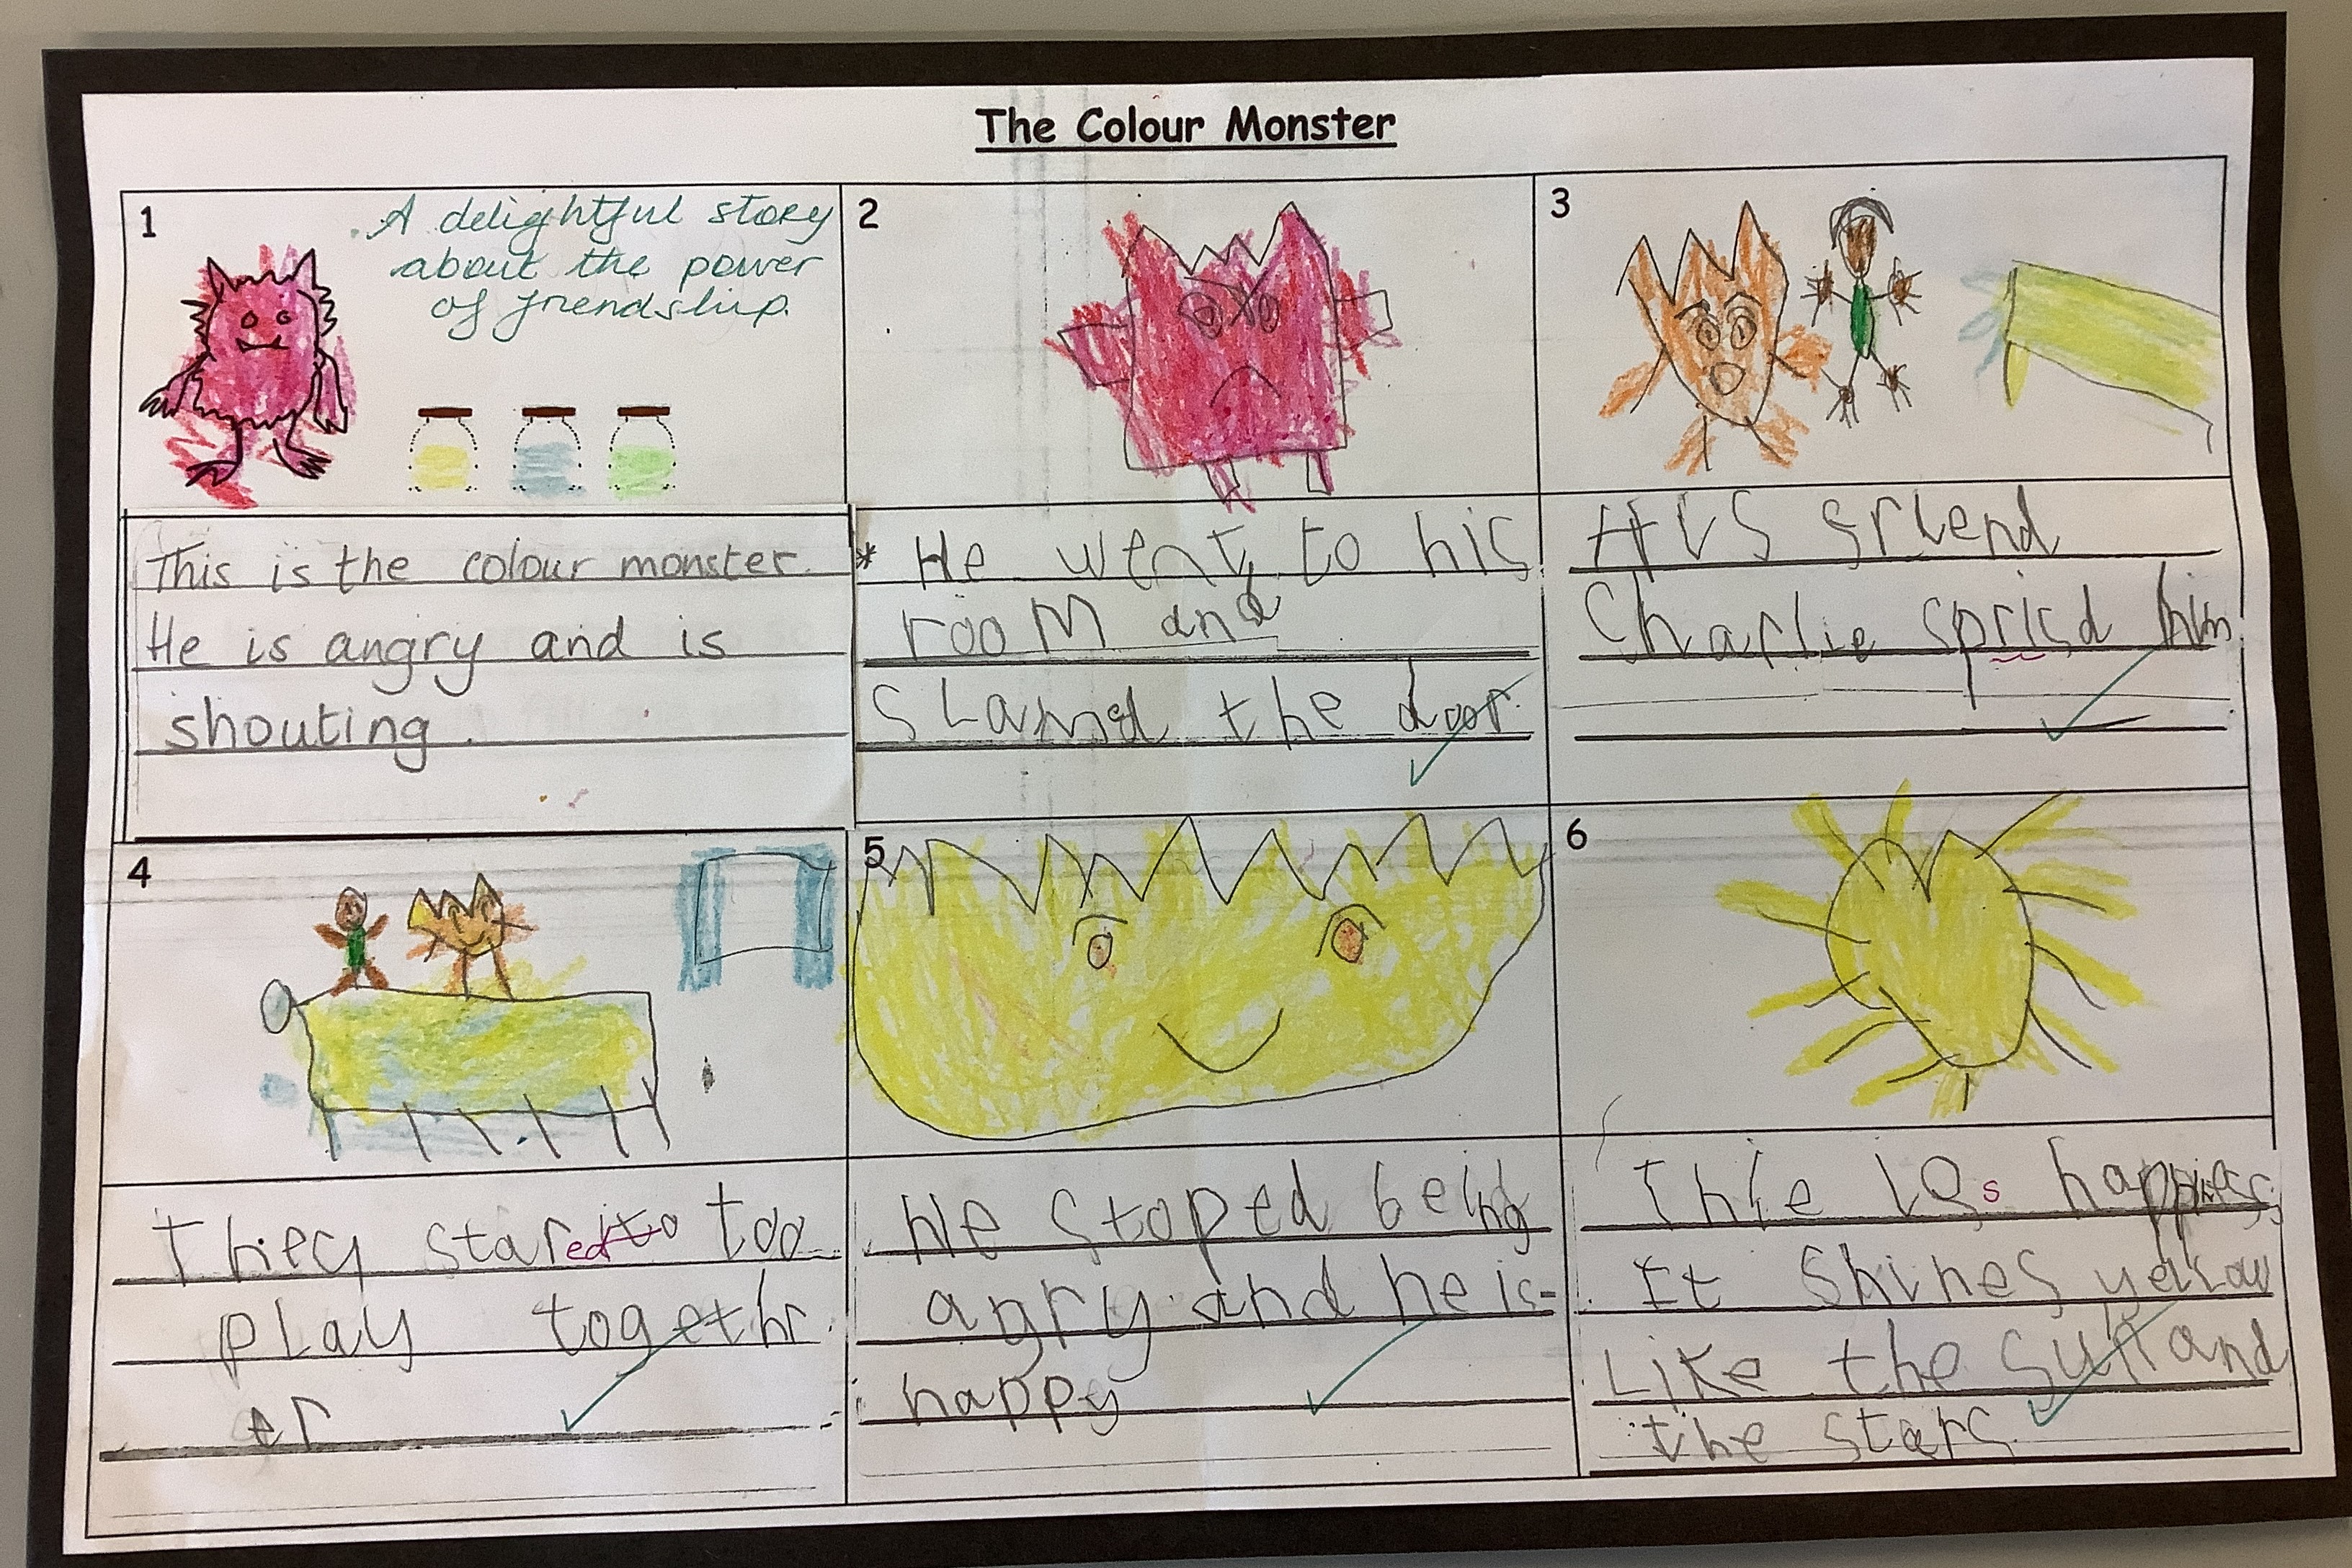 The Colour Monster
1
A delightful story
about the power
of friendship.
This is the colour monster.
He is angry and is
shouting.
2
* He went to his
room and
slamd the door.
3
His friend
Charlie sprisd him
4
They stared to too
play togethr
er
5
He stoped being
angry and he is
happy
6
This is happiness
It shines yellow
Like the sun and
the stars.